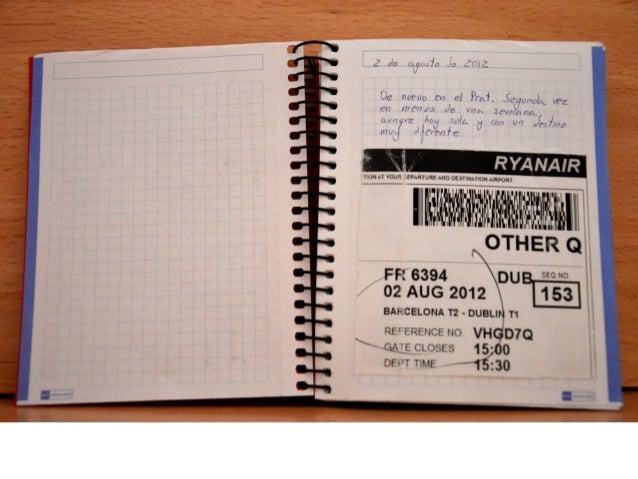 2 de agosto de 2012
De nuevo en el Prat. Segunda vez
en menos de una semana,
aunque hoy sola y con un destino
muy diferente
RYANAIR
TION AT YOUR DEPARTURE AND DESTINATION AIRPORT.
OTHER Q
FR 6394 DUB SEQ NO.
02 AUG 2012 153
BARCELONA T2 - DUBLIN T1
REFERENCE NO. VHGD7Q
GATE CLOSES 15:00
DEPT TIME 15:30